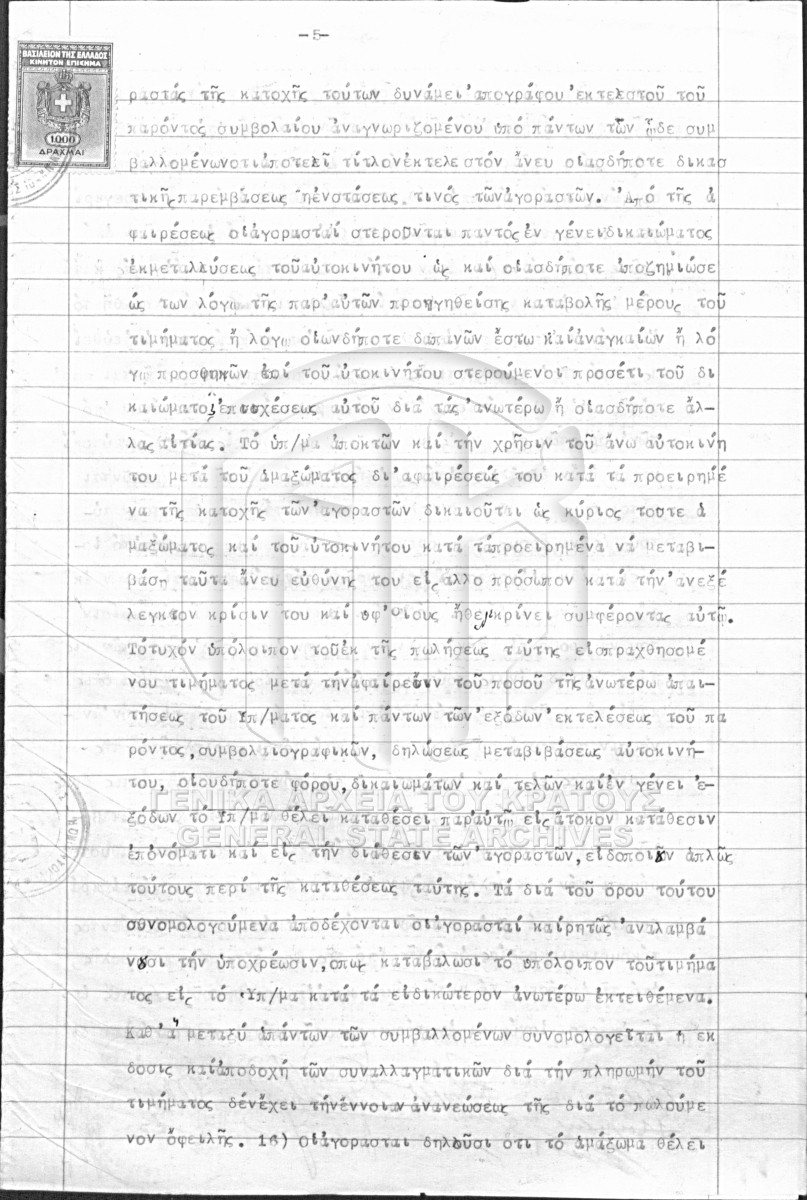 -5-
ΒΑΣΙΛΕΙΟΝ ΤΗΣ ΕΛΛΑΔΟΣ
ΚΙΝΗΤΟΝ ΕΠΙΣΗΜΑ
1000
ΔΡΑΧΜΑΙ
ραστάς τῆς κατοχῆς τούτων δυνάμει ἀπογράφου ἐκτελεστοῦ τοῦ
παρόντος συμβολαίου ἀναγνωριζομένου ὑπό πάντων τῶν ᾧδε συμ
βαλλομένωνοτιἀποτελεῖ τίτλονἐκτελεστόν ἄνευ οἱασδήποτε δικασ
τικῆςπαρεμβάσεως ἠἐνστάσεως τινός τῶνἀγοραστῶν. Ἀπό τῆς ἀ
φαιρέσεως οἱἀγορασταί στεροῦνται παντόςἐν γένειδικαιώματος
ἐκμεταλλύσεως τοῦαὐτοκινήτου ὡς καί οἱασδήποτε ἀποζημιώσε
ώς των λόγῳ τῆς παρ'αὐτῶν προηγηθείσης καταβολῆς μέρους τοῦ
τιμήματος ἤ λόγῳ οἱωνδήποτε δαπανῶν ἔστω καίἀναγκαίων ἤ λό
γῳ προσθηκῶν ἐπί τοῦ ὐτοκινήτου στερούμενοι προσέτι τοῦ δι
καιώματος ἐπισχέσεως αὐτοῦ διά τάς ἀνωτέρω ἤ οἱασδήποτε ἄλ-
λας αἰτίας. Τό ὑπ/μα ἀποκτῶν καί τήν χρῆσιν τοῦ ἄνω αὐτοκινή
του μετά τοῦ ἁμαξώματος δι'ἀφαιρέσεώς του κατά τά προειρημέ
να τῆς κατοχῆς τῶν ἀγοραστῶν δικαιοῦται ὡς κύριος τοστε ἁ
μαξώματος καί τοῦ ὐτοκινήτου κατά τάπροειρημένα νά μεταβι-
βάσῃ ταῦτα ἄνευ εὐθύνης του εἰς ἄλλο πρόσωπον κατά τήν ἀνεξέ
λεγκτον κρίσιν του καί ὑφ'οἵους ἤθελε κρίνει συμφέροντας αὐτῷ.
Τότυχόν ὑπόλοιπον τοῦἐκ τῆς πωλήσεως ταύτης εἰσπραχθησομέ
νου τιμήματος μετά τήνἀφαίρεσιν τοῦ ποσοῦ τῆς ἀνωτέρω ἀπαι-
τήσεως τοῦ Υπ/ματος καί πάντων τῶν ἐξόδων ἐκτελέσεως τοῦ πα
ρόντος,συμβολαιογραφικῶν, δηλώσεως μεταβιβάσεως αὐτοκινή-
του, οἱουδήποτε φόρου,δικαιωμάτων καί τελῶν καίἐν γένει ἐ-
ξόδων τό Υπ/μα θέλει καταθέσει παρ'αὐτῷ εἰς ἄτοκον κατάθεσιν
ἐπ'ὀνόματι καί εἰς τήν διάθεσιν τῶν ἀγοραστῶν,εἰδοποιȣ͂ν ἁπλῶς
τούτους περί τῆς καταθέσεως ταύτης. Τά διά τοῦ ὅρου τούτου
συνομολογούμενα ἀποδέχονται οἱἀγορασταί καίρητῶς ἀναλαμβά
νȣσι τήν ὑποχρέωσιν,οπως καταβάλωσι τό ὑπόλοιπον τοῦτιμήμα
τος εἰς τό Υπ/μα κατά τά εἰδικώτερον ἀνωτέρω ἐκτειθέμενα.
Καθ'ἅ μεταξύ ἁπάντων τῶν συμβαλλομένων συνομολογεῖται ἡ ἐκ
δοσις καίἀποδοχή τῶν συναλλαγματικῶν διά τήν πληρωμήν τοῦ
τιμήματος δένἔχει τήνἔννοιαν ἀνανεώσεως τῆς διά τό πωλούμε
νον ὀφειλῆς. 16) Οἱἀγορασταί δηλοῦσι οτι τό ἁμάξωμα θέλει
ΓΕΝΙΚΑ ΑΡΧΕΙΑ ΤΟΥ ΚΡΑΤΟΥΣ
GENERAL STATE ARCHIVES